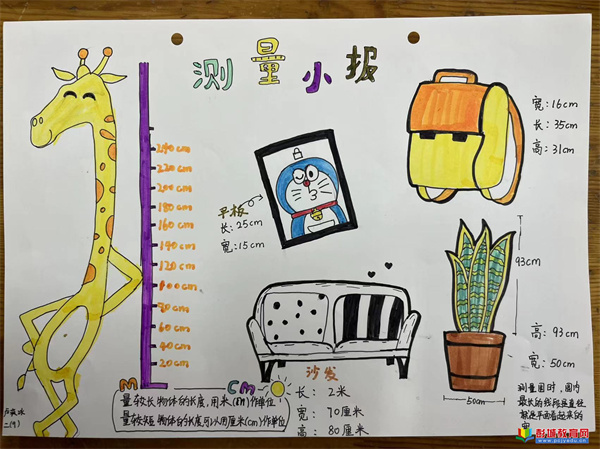 测量小报
240cm
220cm
200cm
180cm
160cm
140cm
120cm
100cm
80cm
60cm
40cm
20cm
平板
长:25cm
宽:15cm
宽:16cm
长:35cm
高:31cm
93cm
高:93cm
宽:50cm
50cm
沙发
长:2米
宽:70厘米
高:80厘米
M
CM
量较长物体的长度,用米(m)作单位!
量较短物体的长度可以用厘米(cm)作单位
测量圆时,圆内
最长的线段是直径
就是平面看起来的
宽
二(9)
彭城教育网
www.pcjyedu.cn